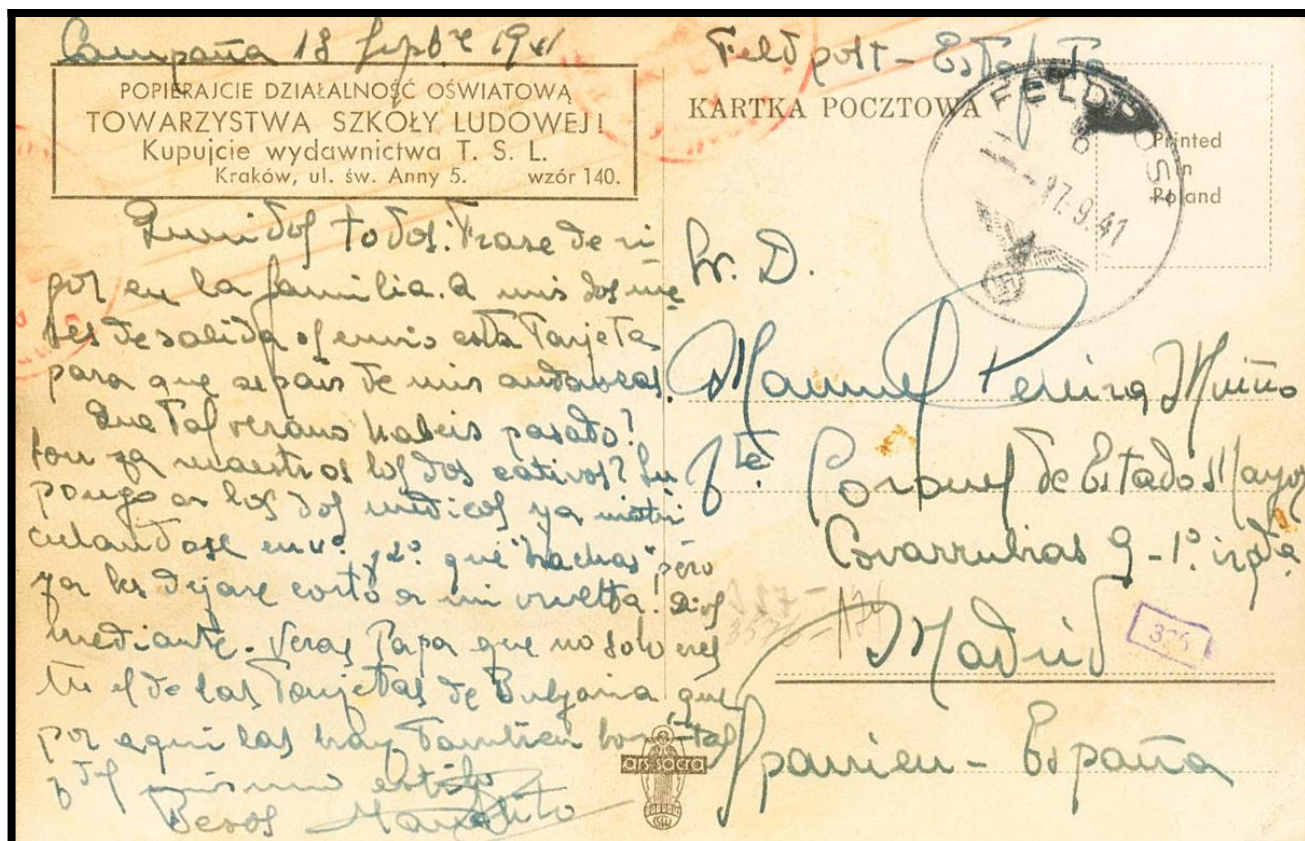 Campaña 13 Sepbre 1941
POPIERAJCIE DZIAŁALNOŚĆ OŚWIATOWĄ
TOWARZYSTWA SZKOŁY LUDOWEJ!
Kupujcie wydawnictwa T. S. L.
Kraków, ul. św. Anny 5. wzór 140.
todos: Frase de ri
gor en la familia. A mis dos me
ses de salida os envio esta Tarjeta
para que sepais de mis andanzas.
Que Tal verano habeis pasado?
Son ya maestros los dos cativos? Su
pongo a los dos medicos ya matri
culandose en 4º y 2º que "hachas" pero
ya les dejare corto a mi vuelta. Dios
mediante. Veras Papa que no solo eres
tu el de las Tarjetas de Bulgaria, que
por aqui las hay Tambien bonitas
y del mismo estilo
Besos Manolito
Feldpost - Estafeta
KARTKA POCZTOWA
FELDPOST
b
17.9.41
Printed
in
Poland
Sr. D.
Manuel Pereira
Tte. Coronel de Estado Mayor
Covarrubias 9 - 1º izqda
Madrid
Spanien - España
ars sacra